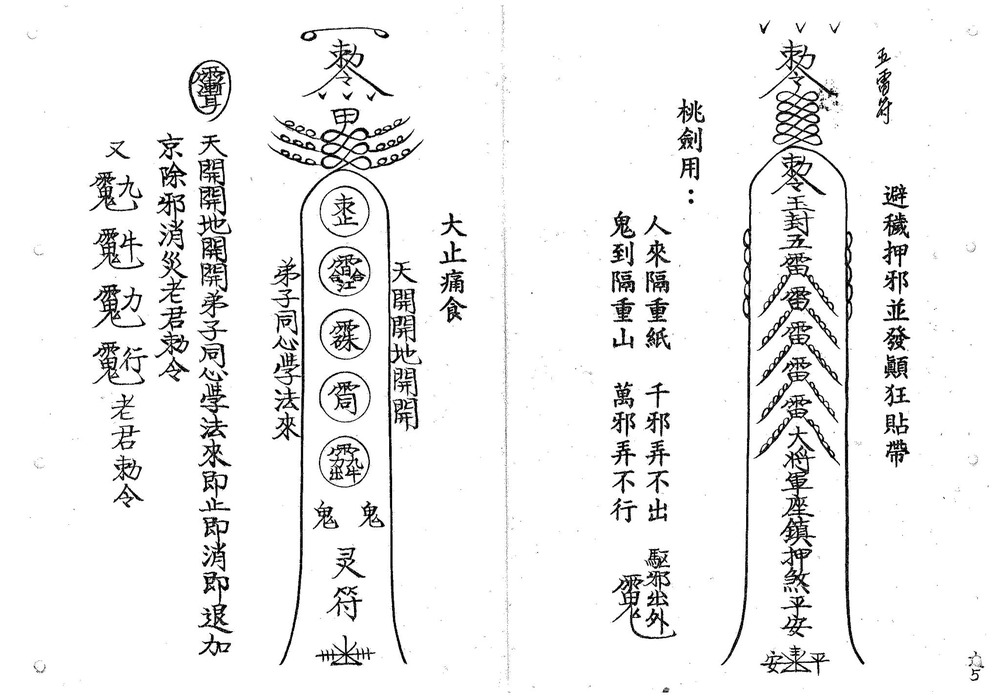 五雷符
避穢押邪並發顛狂貼帶
勅令
勅令玉封五雷
大將軍座鎮押煞平安
安 平
桃劍用：
人來隔重紙 千邪弄不出
鬼到隔重山 萬邪弄不行
驅邪出外
大止痛食
天開開地開開
勅令
甲
鬼 鬼
灵符
弟子同心學法來
天開開地開開弟子同心學法來即止即消即退加
京除邪消災老君勅令
又
九 牛 力 行
老君勅令
5